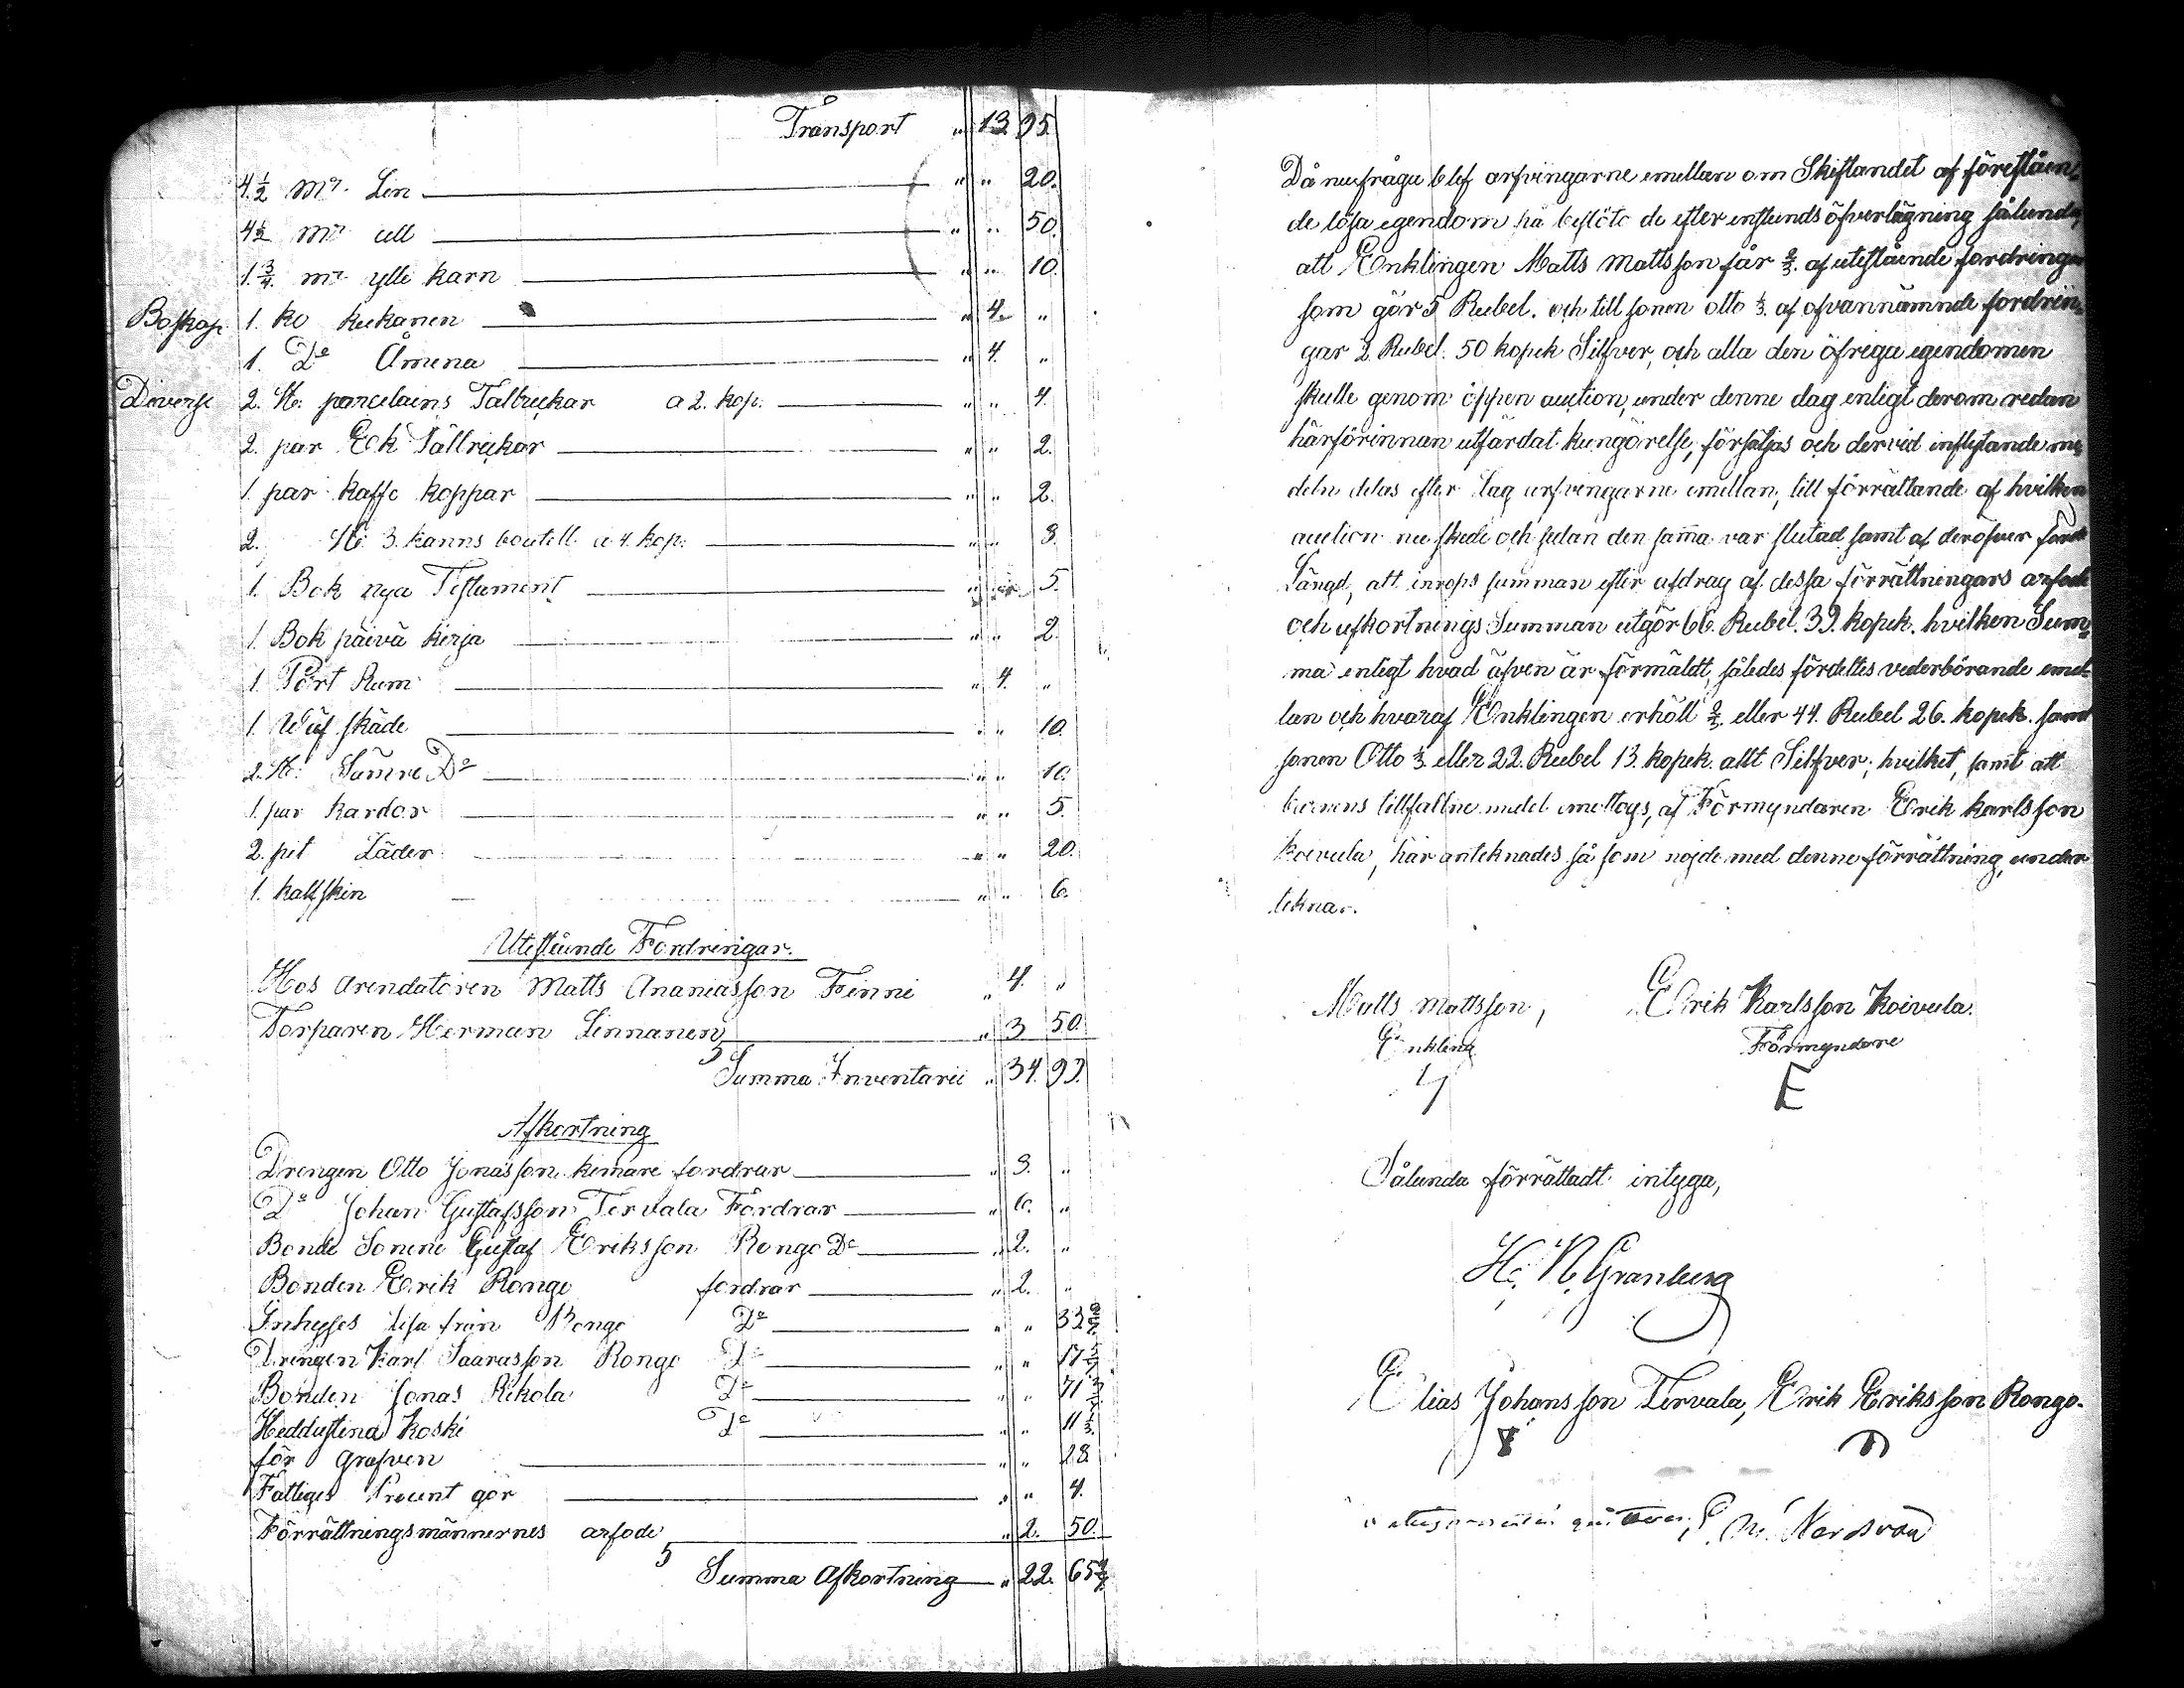 Transport " 13 95.
4 1/2 mr. Lin " " 20.
4 1/2 mr. ull " " 50.
1 3/4 mr ylle karn " " 10.
Boskap 1. ko kukanen " 4. "
1. Do Ämena " 4. "
Diverse 2. St: porcelains Tallrickar a 2. kop. " " 4.
2. par Ek Tallrickar " " 2.
1. par Kaffe koppar " " 2.
2. St: 3. kanns boutell. a 4. kop. " " 8.
1. Bok nya Testament " " 5.
1. Bok päivä kirja " " 2.
1. Pört Rum " 4. "
1. Wäf skäde " " 10.
2. St: Sämre Do " " 10.
1. par Kardor " " 5.
2. pit Läder " " 20.
1. kalfskin " " 6.
Utestående Fordringar.
Hos Arendatoren Matts Ananiasson Finni " 4. "
Torparen Herman Linnanen " 3 50.
Summa Inventarii " 34. 93.
Afkortning
Drengen Otto Jonasson kimare fordrar " 8. "
Do Johan Gustafsson Tervala Fordrar " 6. "
Bonde Sonene Gustaf Eriksson Rongo Do " 2. "
Bonden Erik Rongo fordrar " 2. "
Inhyses Lisa från Rongo Do " " 33 2/7
Drengen Karl Saarasson Rongo Do " " 17 5/7
Bonden Jonas Rekola Do " " 71 3/7
Heddustina Koski Do " " 11 1/3.
för grafven " " 28
Fattiges Procent gör " " 4.
Förrättningsmännernes arfode " 2. 50.
Summa Afkortning " 22. 65 2/7
Då nu fråga blef arfvingarne emellan om Skiftandet af föreståen¬
de lösa egendom så beslöto de efter enstunds öfverlägning sålunda,
att Enklingen Matts Mattsson får 2/3. af utestående fordringar
som gör 5 Rubel. och till sonen Otto 1/3. af ofvannämnde fordrin¬
gar 2. Rubel. 50 kopek Silfver, och alla den öfriga egendomen
skulle genom öppen auction, under denne dag enligt derom redan
härförinnan utfärdat kungörelse, försäljas och dervid inflytande me¬
deln delas efter Lag arfvingarne emellan, till förrättande af hvilken
auction nu skede och sedan den samma var slutad samt af deröfver förde
Längd, att inrops summan efter afdrag af dessa förrättningars arfode
och afkortnings Summan utgör 66. Rubel. 39. kopek. hvilken Sum¬
ma enligt hvad äfven är förmäldt, således fördeltes vederbörande emel¬
lan och hvaraf Enklingen erhöll 2/3. eller 44. Rubel 26. kopek. samt
sonen Otto 1/3. eller 22. Rubel 13. kopek. allt Silfver; hvilket, samt att
barnens tillfallne medel emottogs, af Förmyndaren Erik Karlsson
Koivula, här anteknades så som nöjde med denne förrättning, under
teknar.
Matts Mattsson, Erik Karlsson Koivula.
Enkling Förmyndare
E
Sålunda förrättadt intyga,
H. N. Granberg
Elias Johansson Tervala, Erik Eriksson Rongo.
Nordsvan